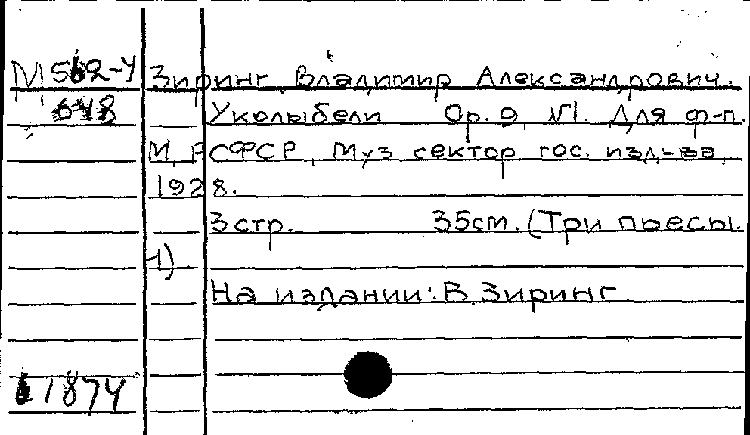 М 562-У Зиринг, Владимир Александрович.
648 У колыбели Op. 9, №1. Для ф-п.
М, РСФСР, Муз сектор гос. изд-ва,
1928.
3 стр. 35 cm. (Три пьесы.
1)
На издании: В. Зиринг
11874